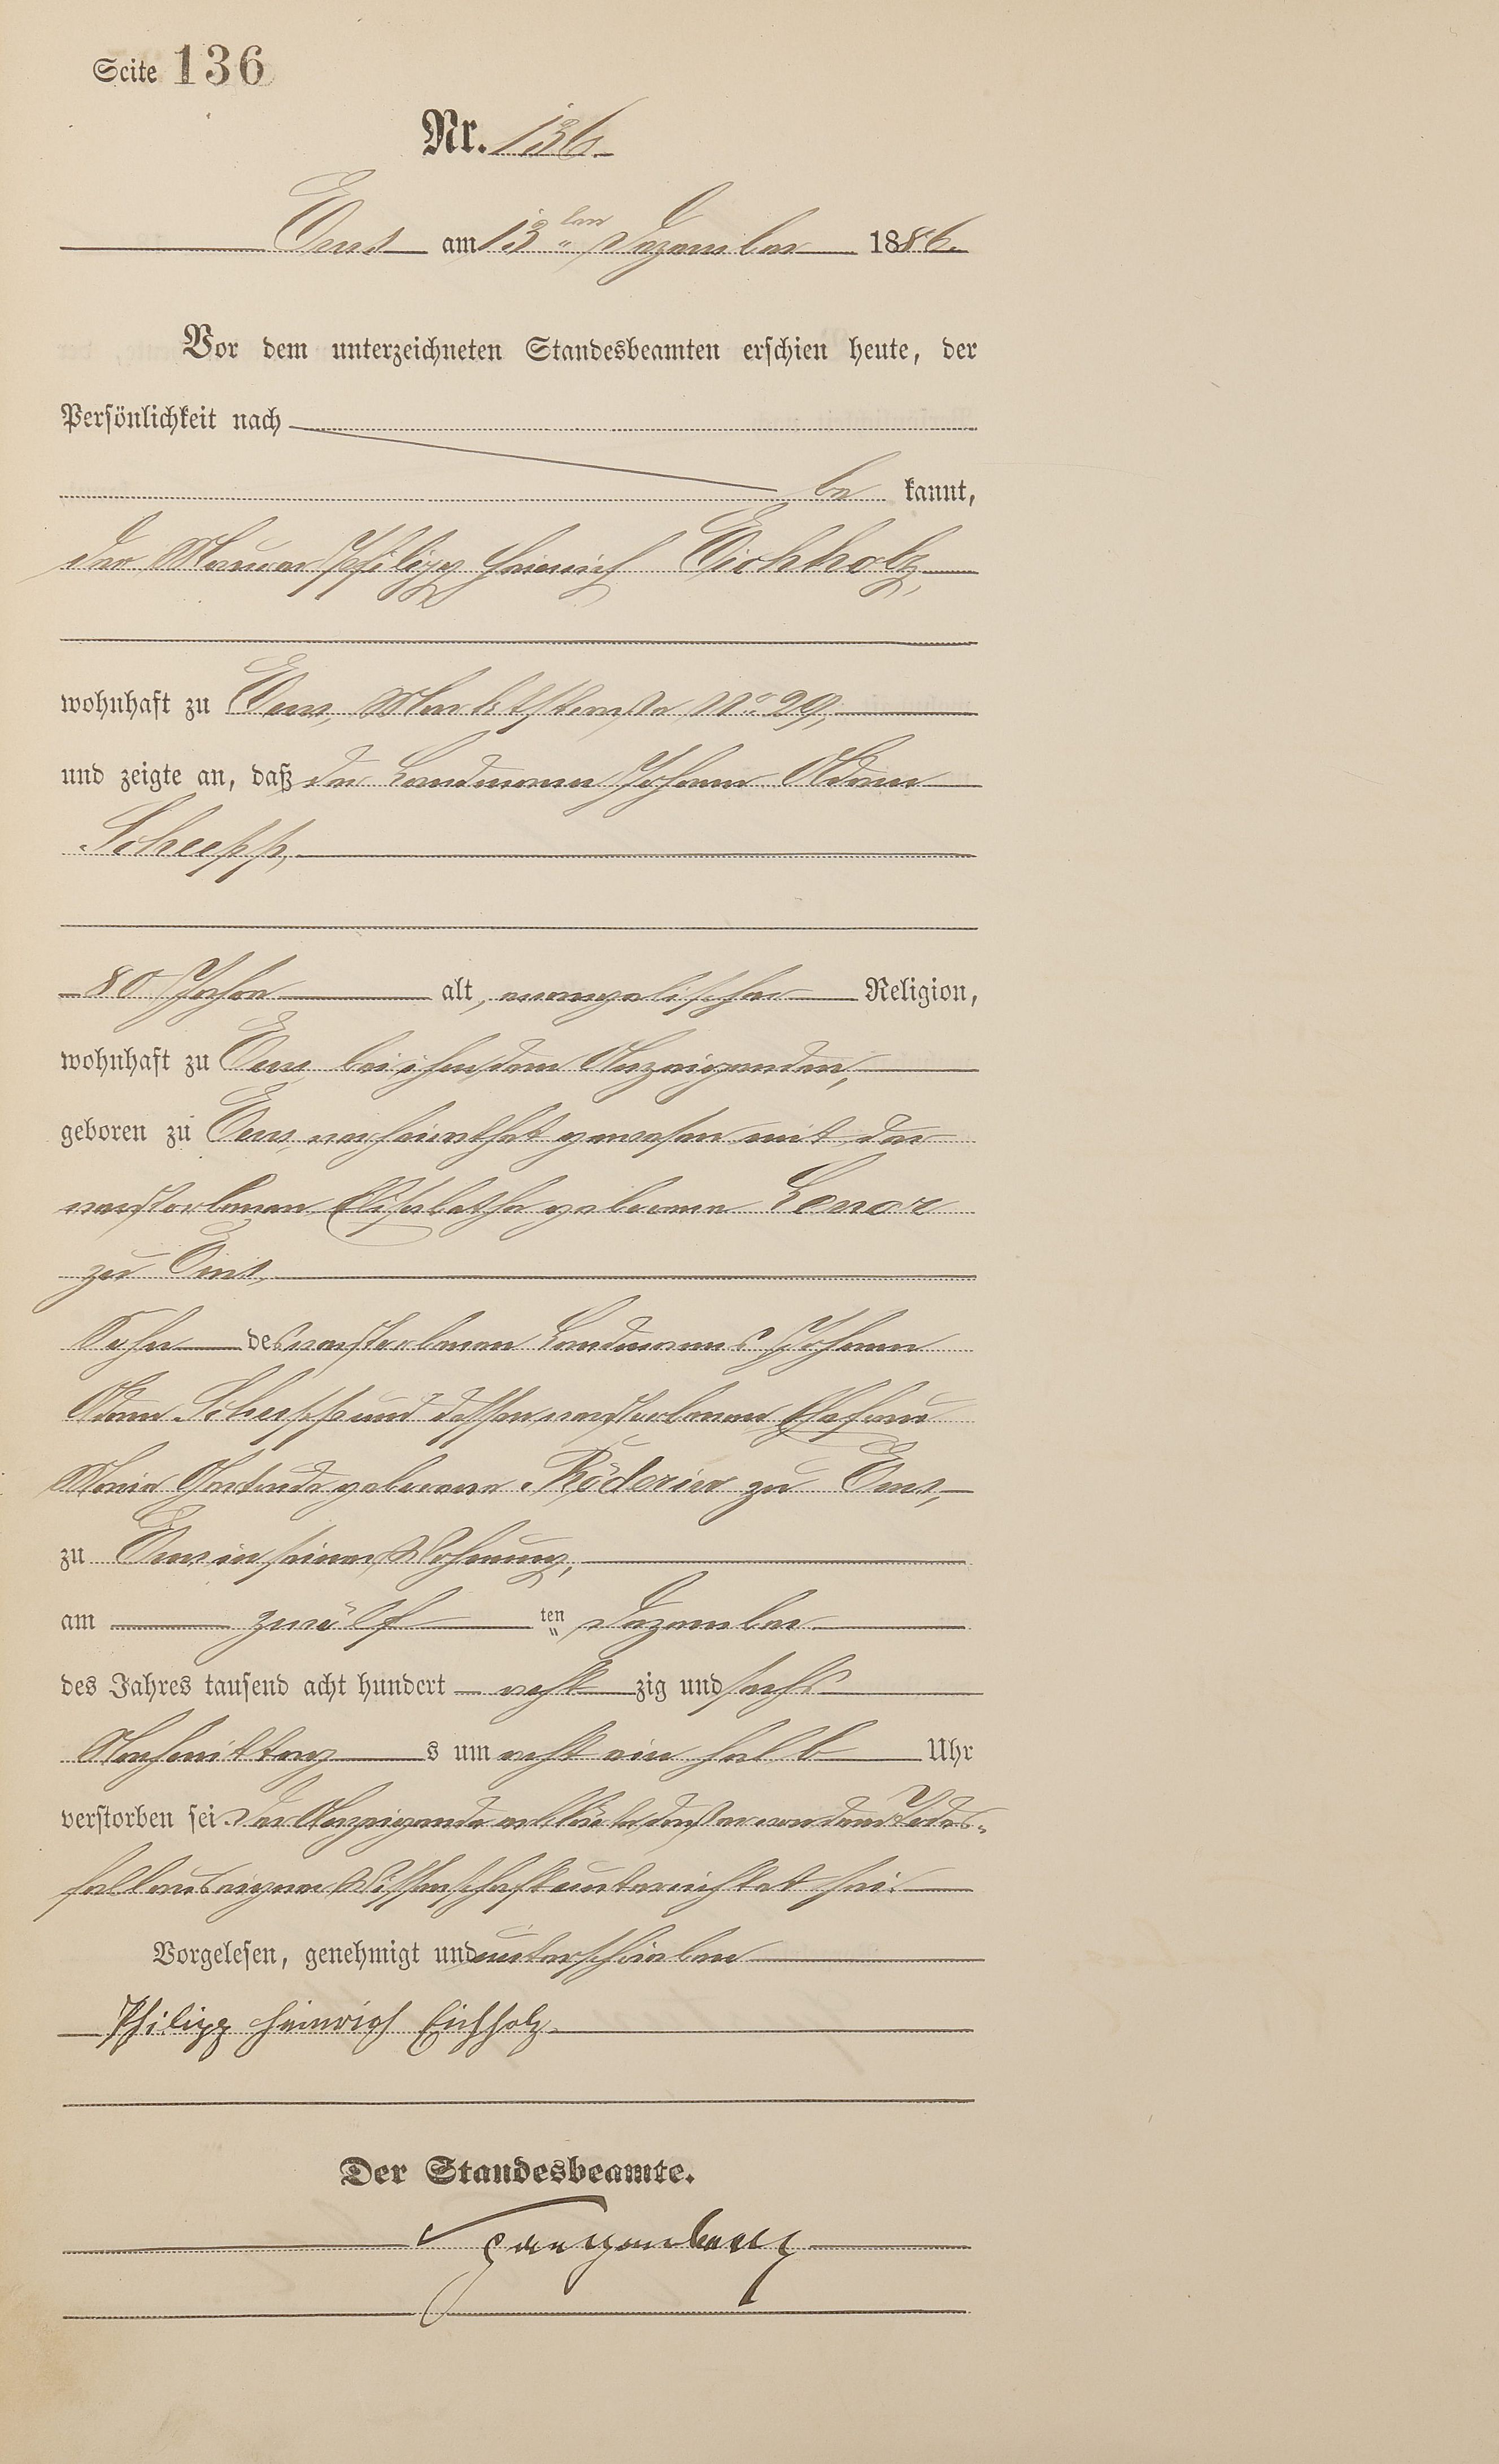 Seite 136
Nr. 136.
Ems am 13ten Dezember 1886.
Vor dem unterzeichneten Standesbeamten erschien heute, der
Persönlichkeit nach
be kannt,
der Maurer Philipp Heinrich Eichholz,
wohnhaft zu Ems, Marktstraße No 29,
und zeigte an, daß der Landmann Johann Adam
Schupp,
80 Jahre alt, evangelischer Religion,
wohnhaft zu Ems bei ihm dem Anzeigenden,
geboren zu Ems, verheirathet gewesen mit der
verstorbenen Elisabetha geborene
zu Ems,
Sohn des verstorbenen Landmanns Johann
Adam Schupp und dessen verstorbenen Ehefrau
Maria Gertrude geborene zu Ems,
zu Ems in seiner Wohnung,
am zwölf ten Dezember
des Jahres tausend acht hundert acht zig und sechs
Nachmittag s um acht ein halb Uhr
verstorben sei. Der Anzeigende erklärte, daß er von dem Todes-
fall aus eigener Wissenschaft unterrichtet sei.
Vorgelesen, genehmigt und unterschrieben
Philipp Heinrich Eichholz
Der Standesbeamte.